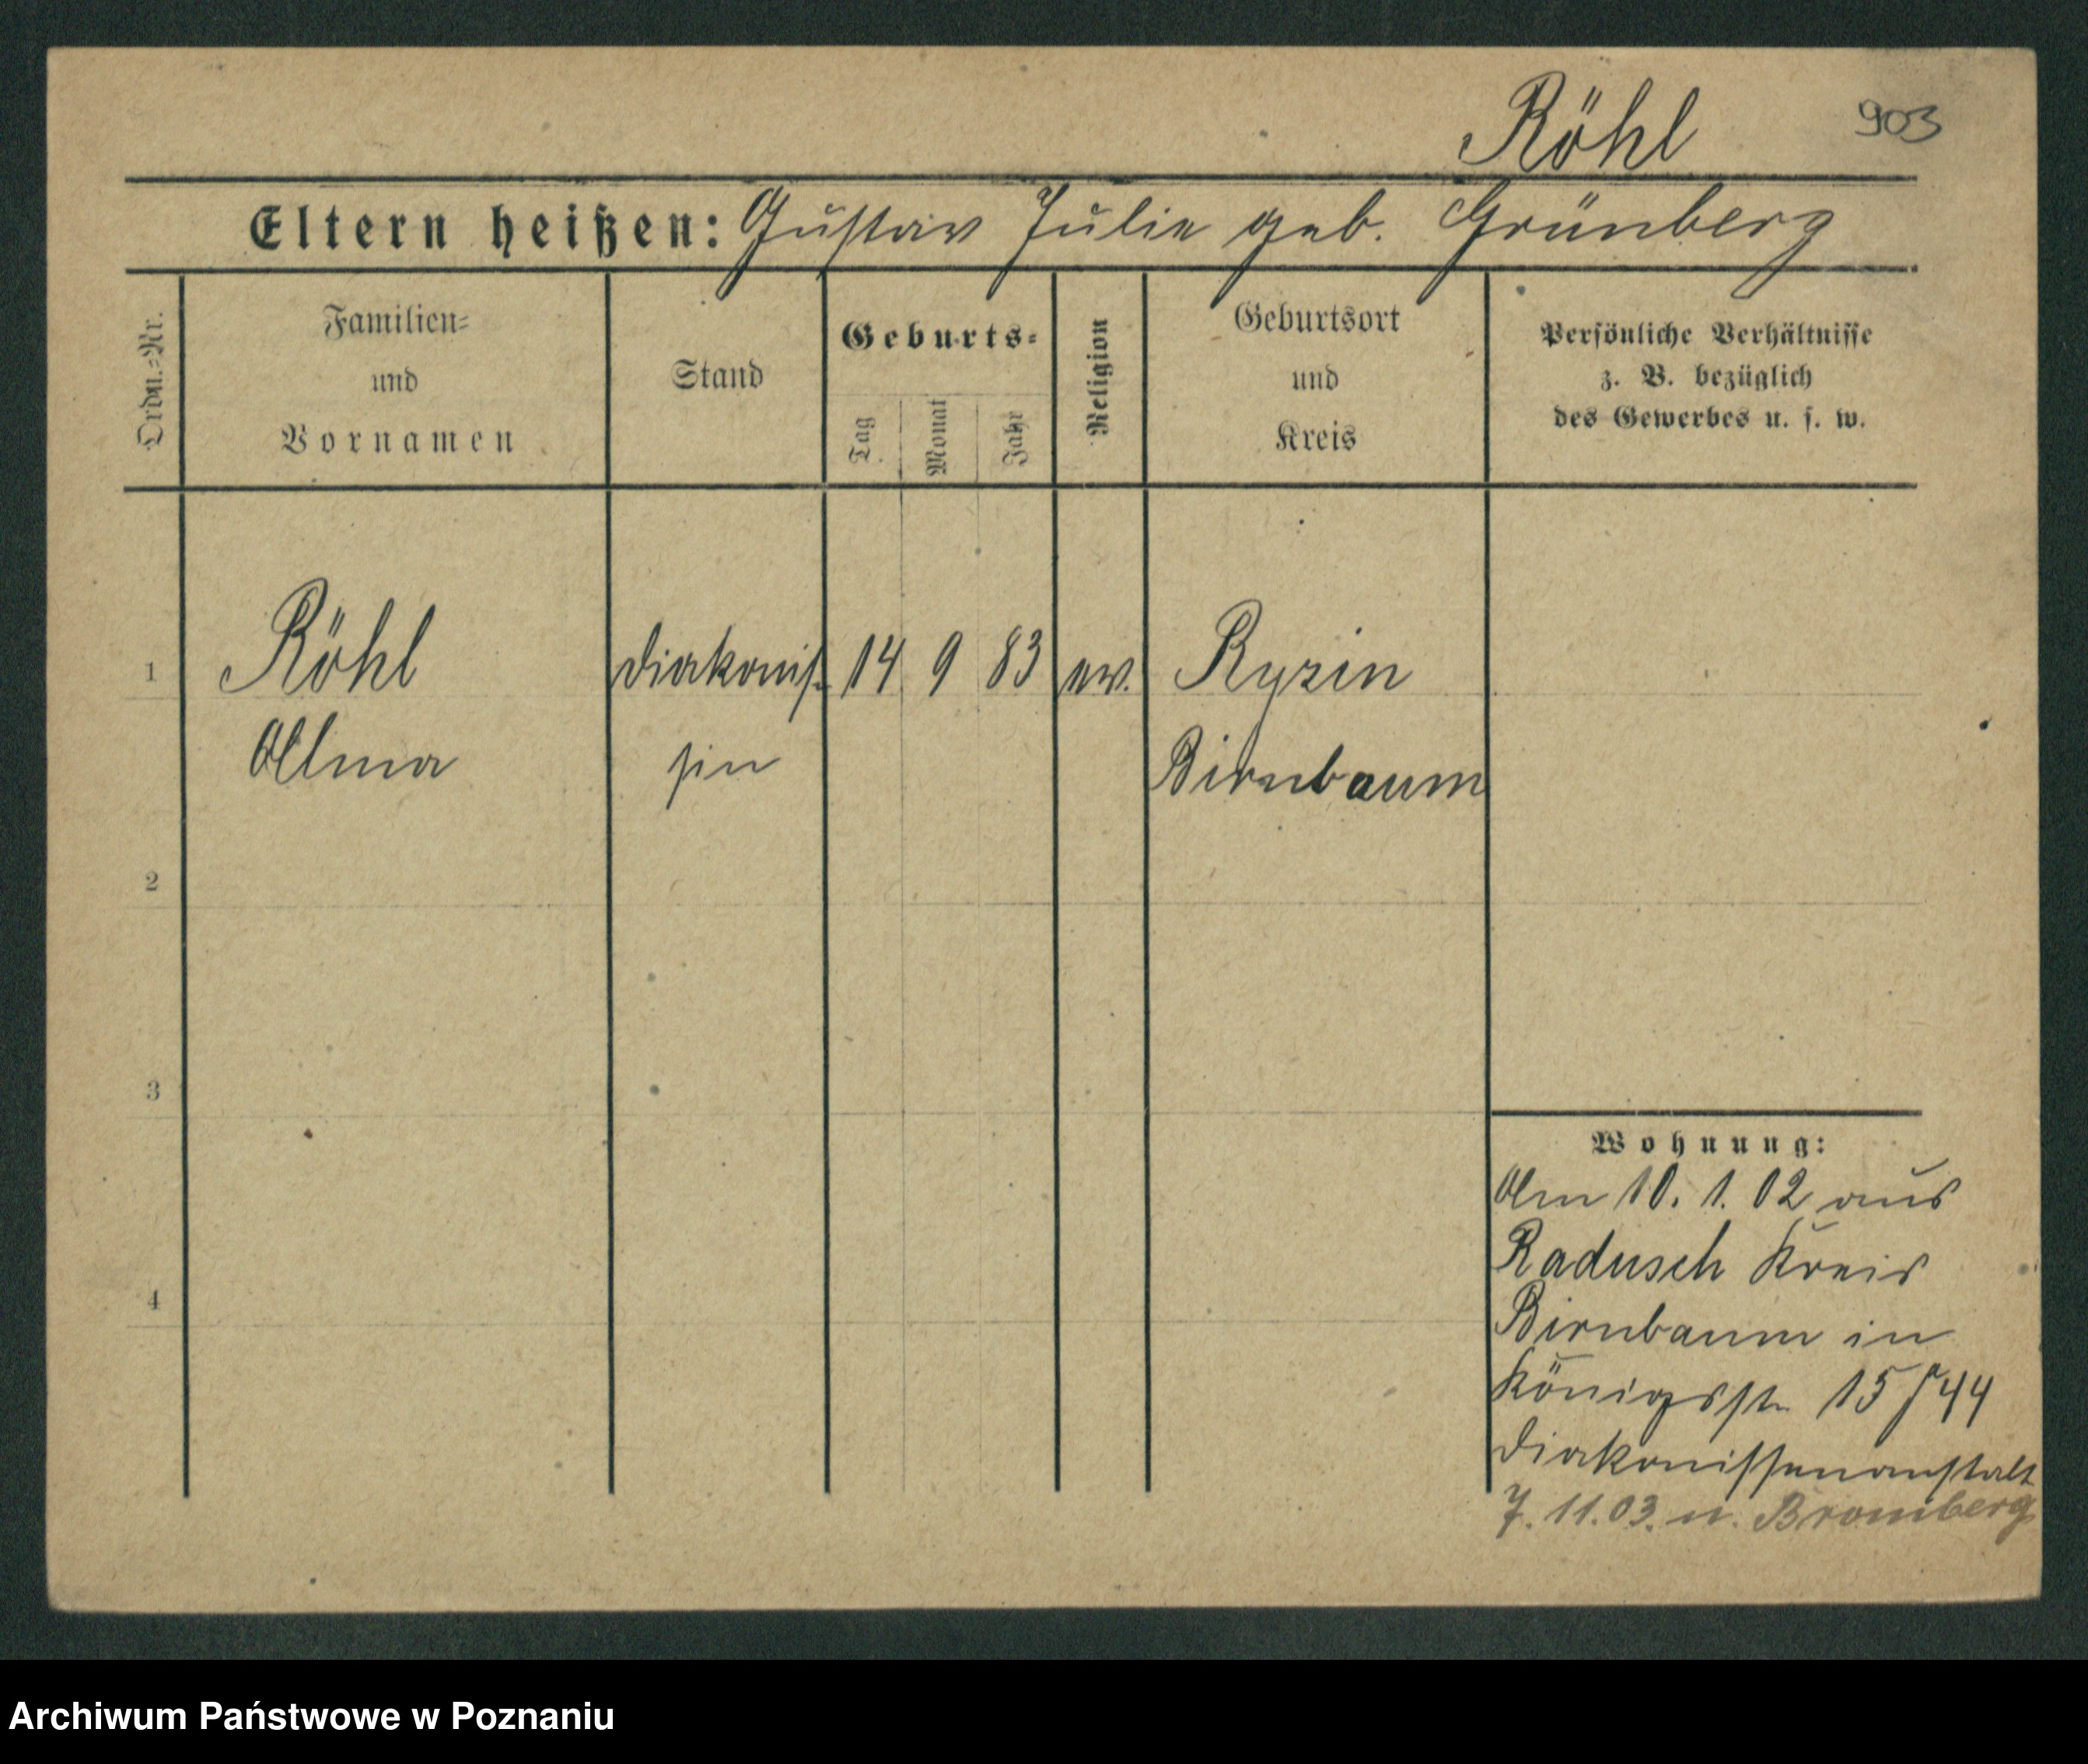 Röhl 903
Eltern heißen: Gustav Julie geb. Grünberg
Ordn.=Nr.
Familien=
und
Vornamen
Stand
Geburts=
Tag
Monat
Jahr
Religion
Geburtsort
und
Kreis
Persönliche Verhältnisse
z. B. bezüglich
des Gewerbes u. s. w.
1 Röhl Diakonis- 14 9 83 ev. Ryzin
Alma sin Birnbaum
2
3
4
Wohnung:
Am 10. 1. 02 aus
Radusch Kreis
Birnbaum in
Königsstr 15 44
Diakonissenanstalt
7. 11. 03. n. Bromberg
Archiwum Państwowe w Poznaniu